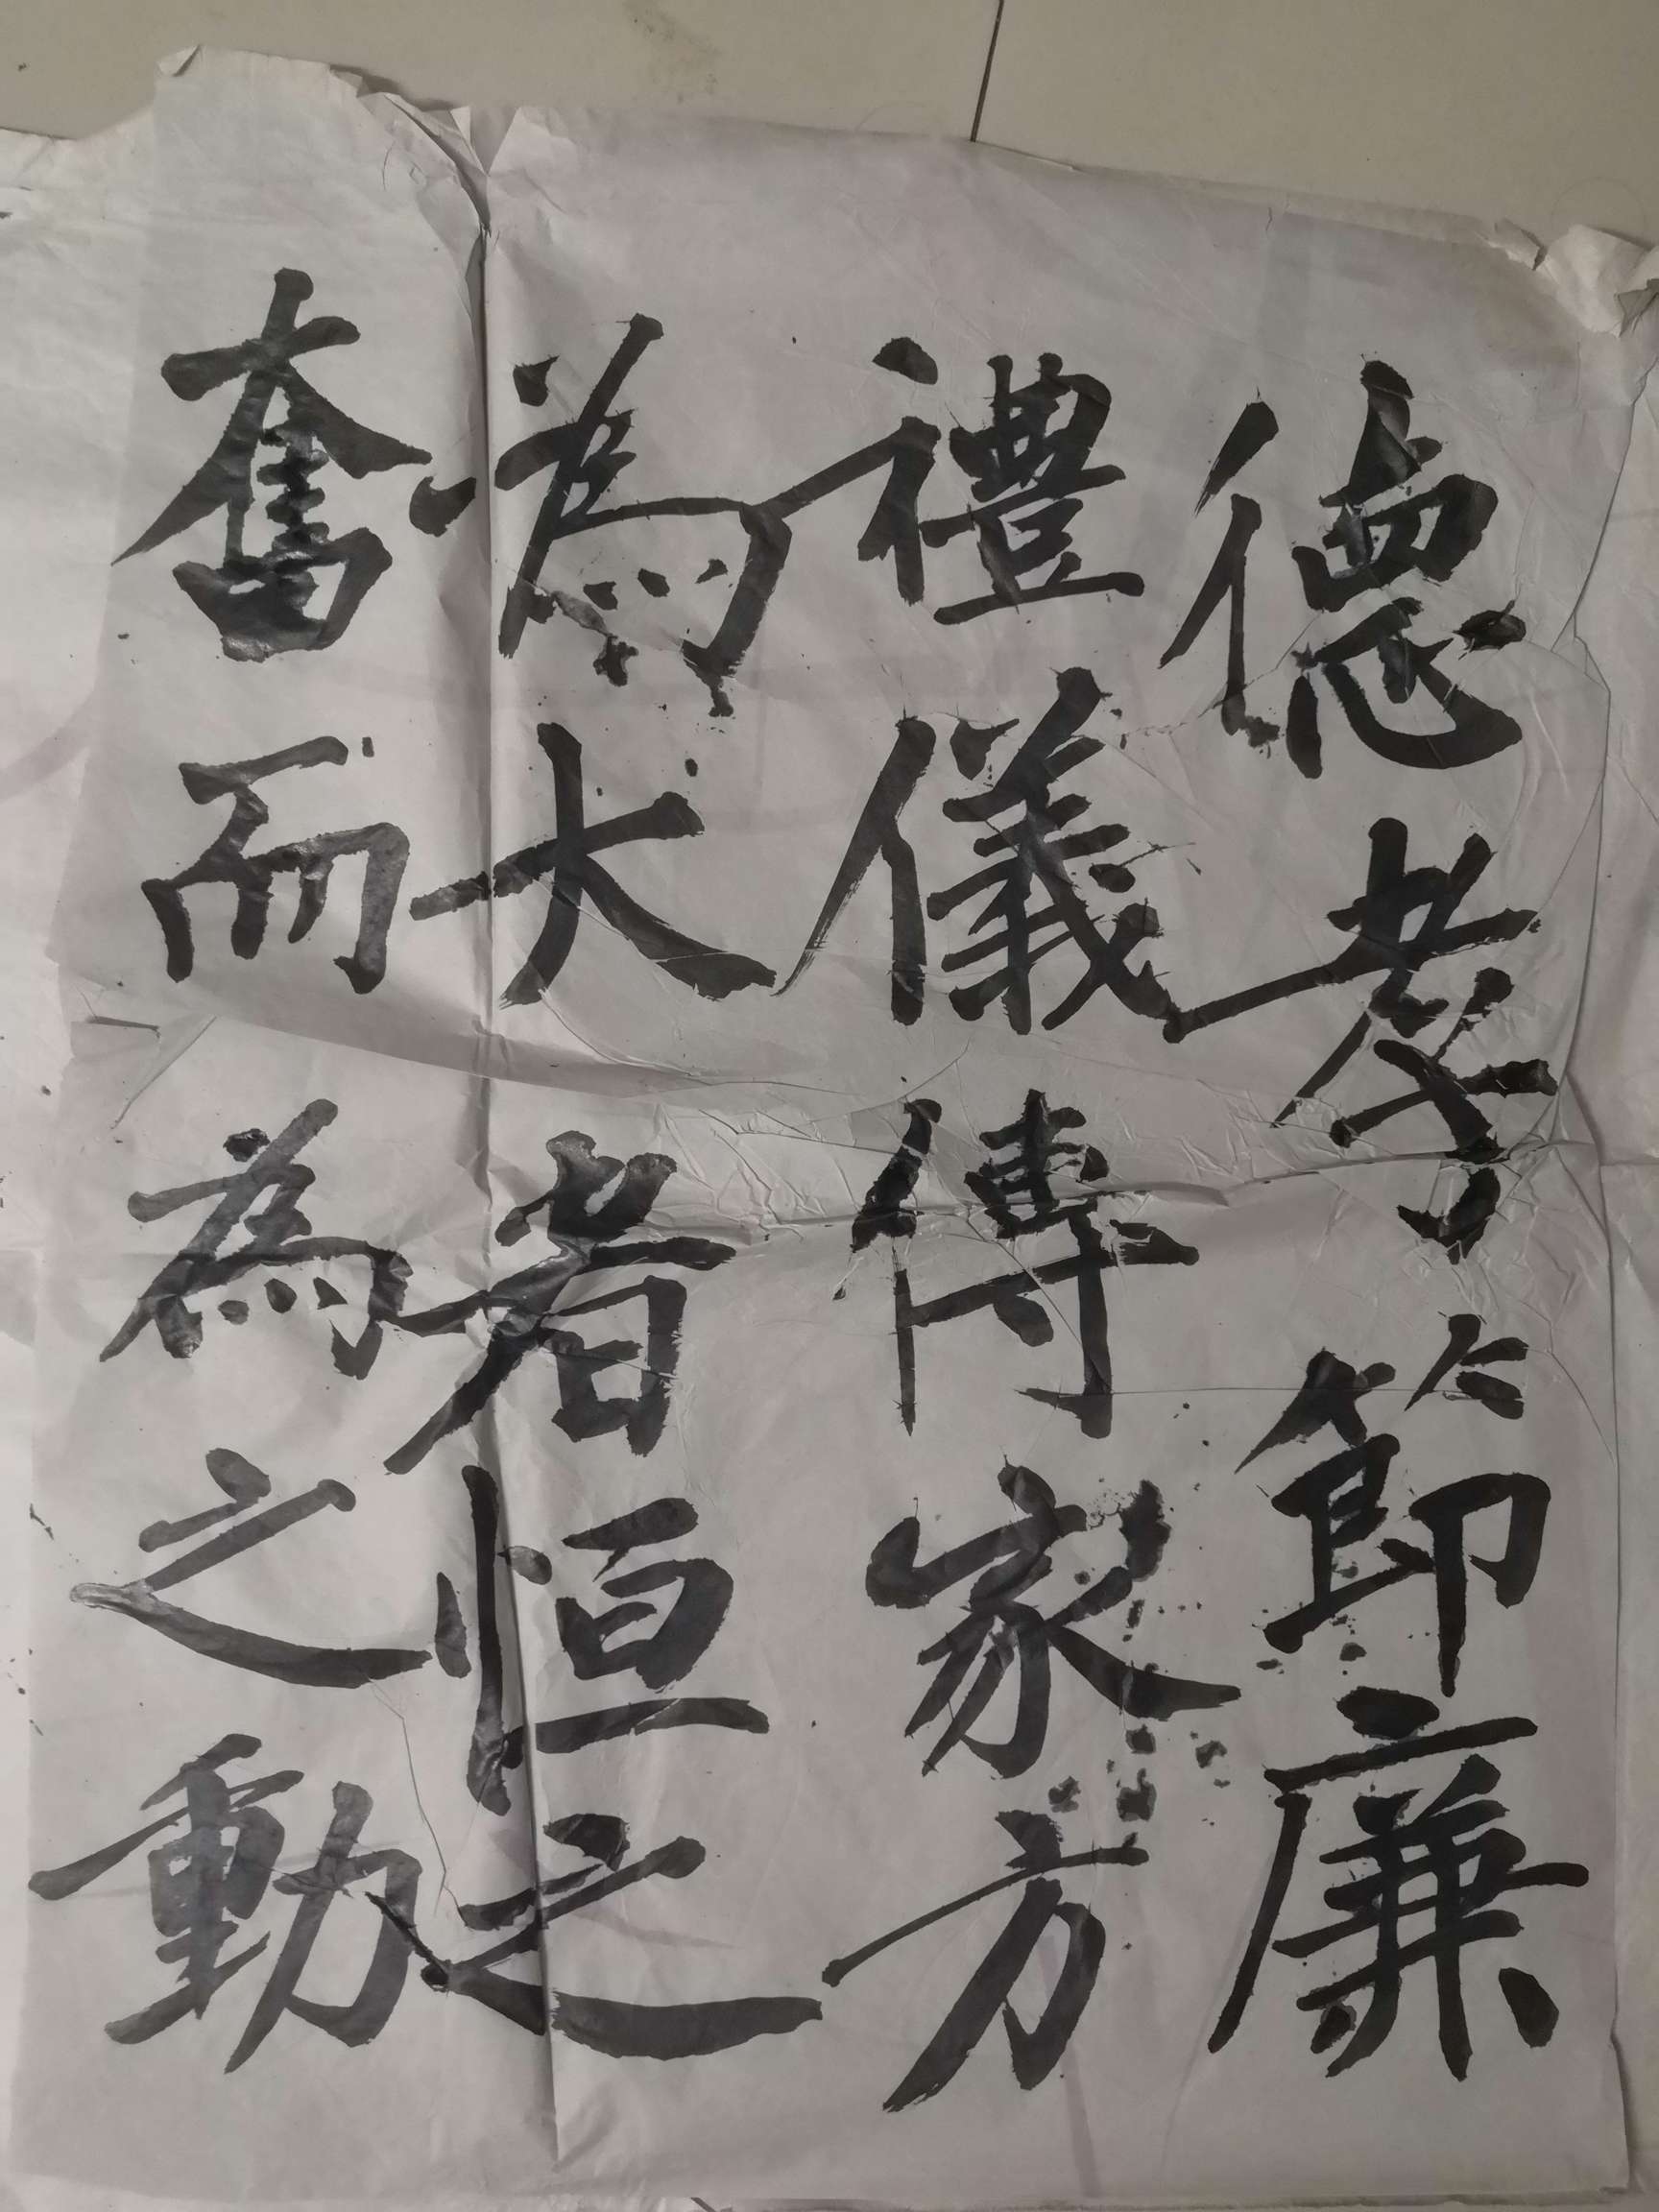 德孝節廉
禮儀傳家方
為大者恒之
奮而為之動